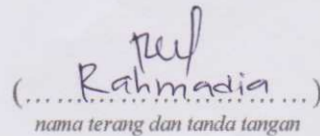 (....Rahmadia....)
nama terang dan tanda tangan